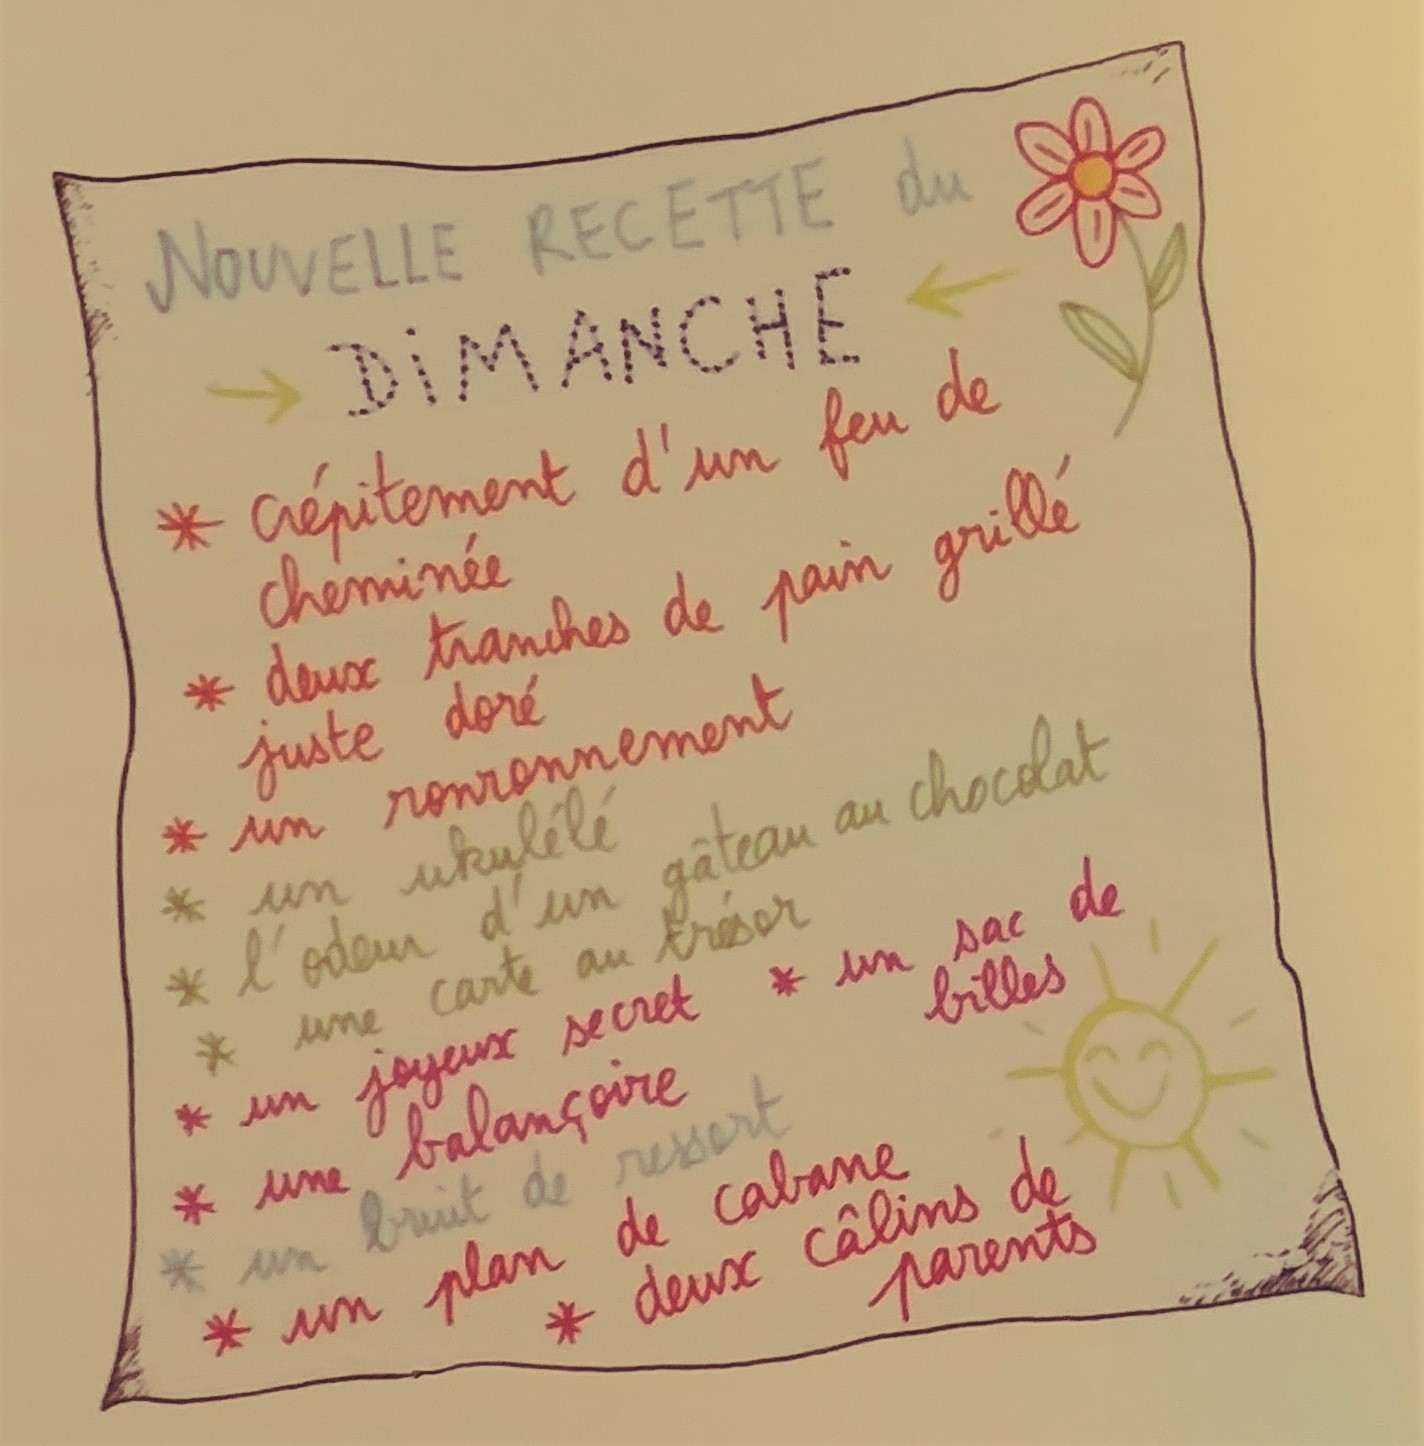 NOUVELLE RECETTE du
DIMANCHE
* crépitement d'un feu de
cheminée
* deux tranches de pain grillé
juste doré
* un ronronnement
* un ukulélé
* l'odeur d'un gâteau au chocolat
* une carte au trésor
* un joyeux secret * un sac de
billes
* une balançoire
* un bruit de ressort
* un plan de cabane
* deux câlins de
parents